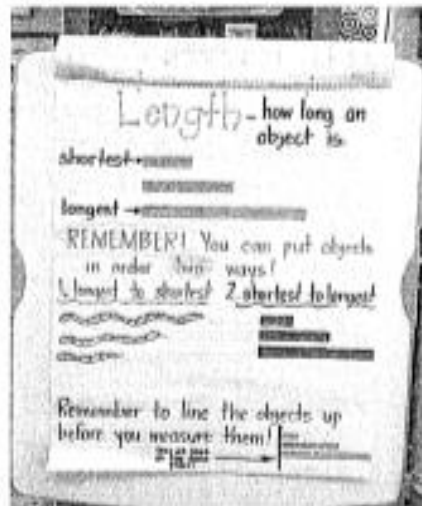 Length - how long an
object is.
shortest →
longest →
REMEMBER! You can put objects
in order two ways!
1. longest to shortest 2. shortest to longest
Remember to line the objects up
before you measure them!